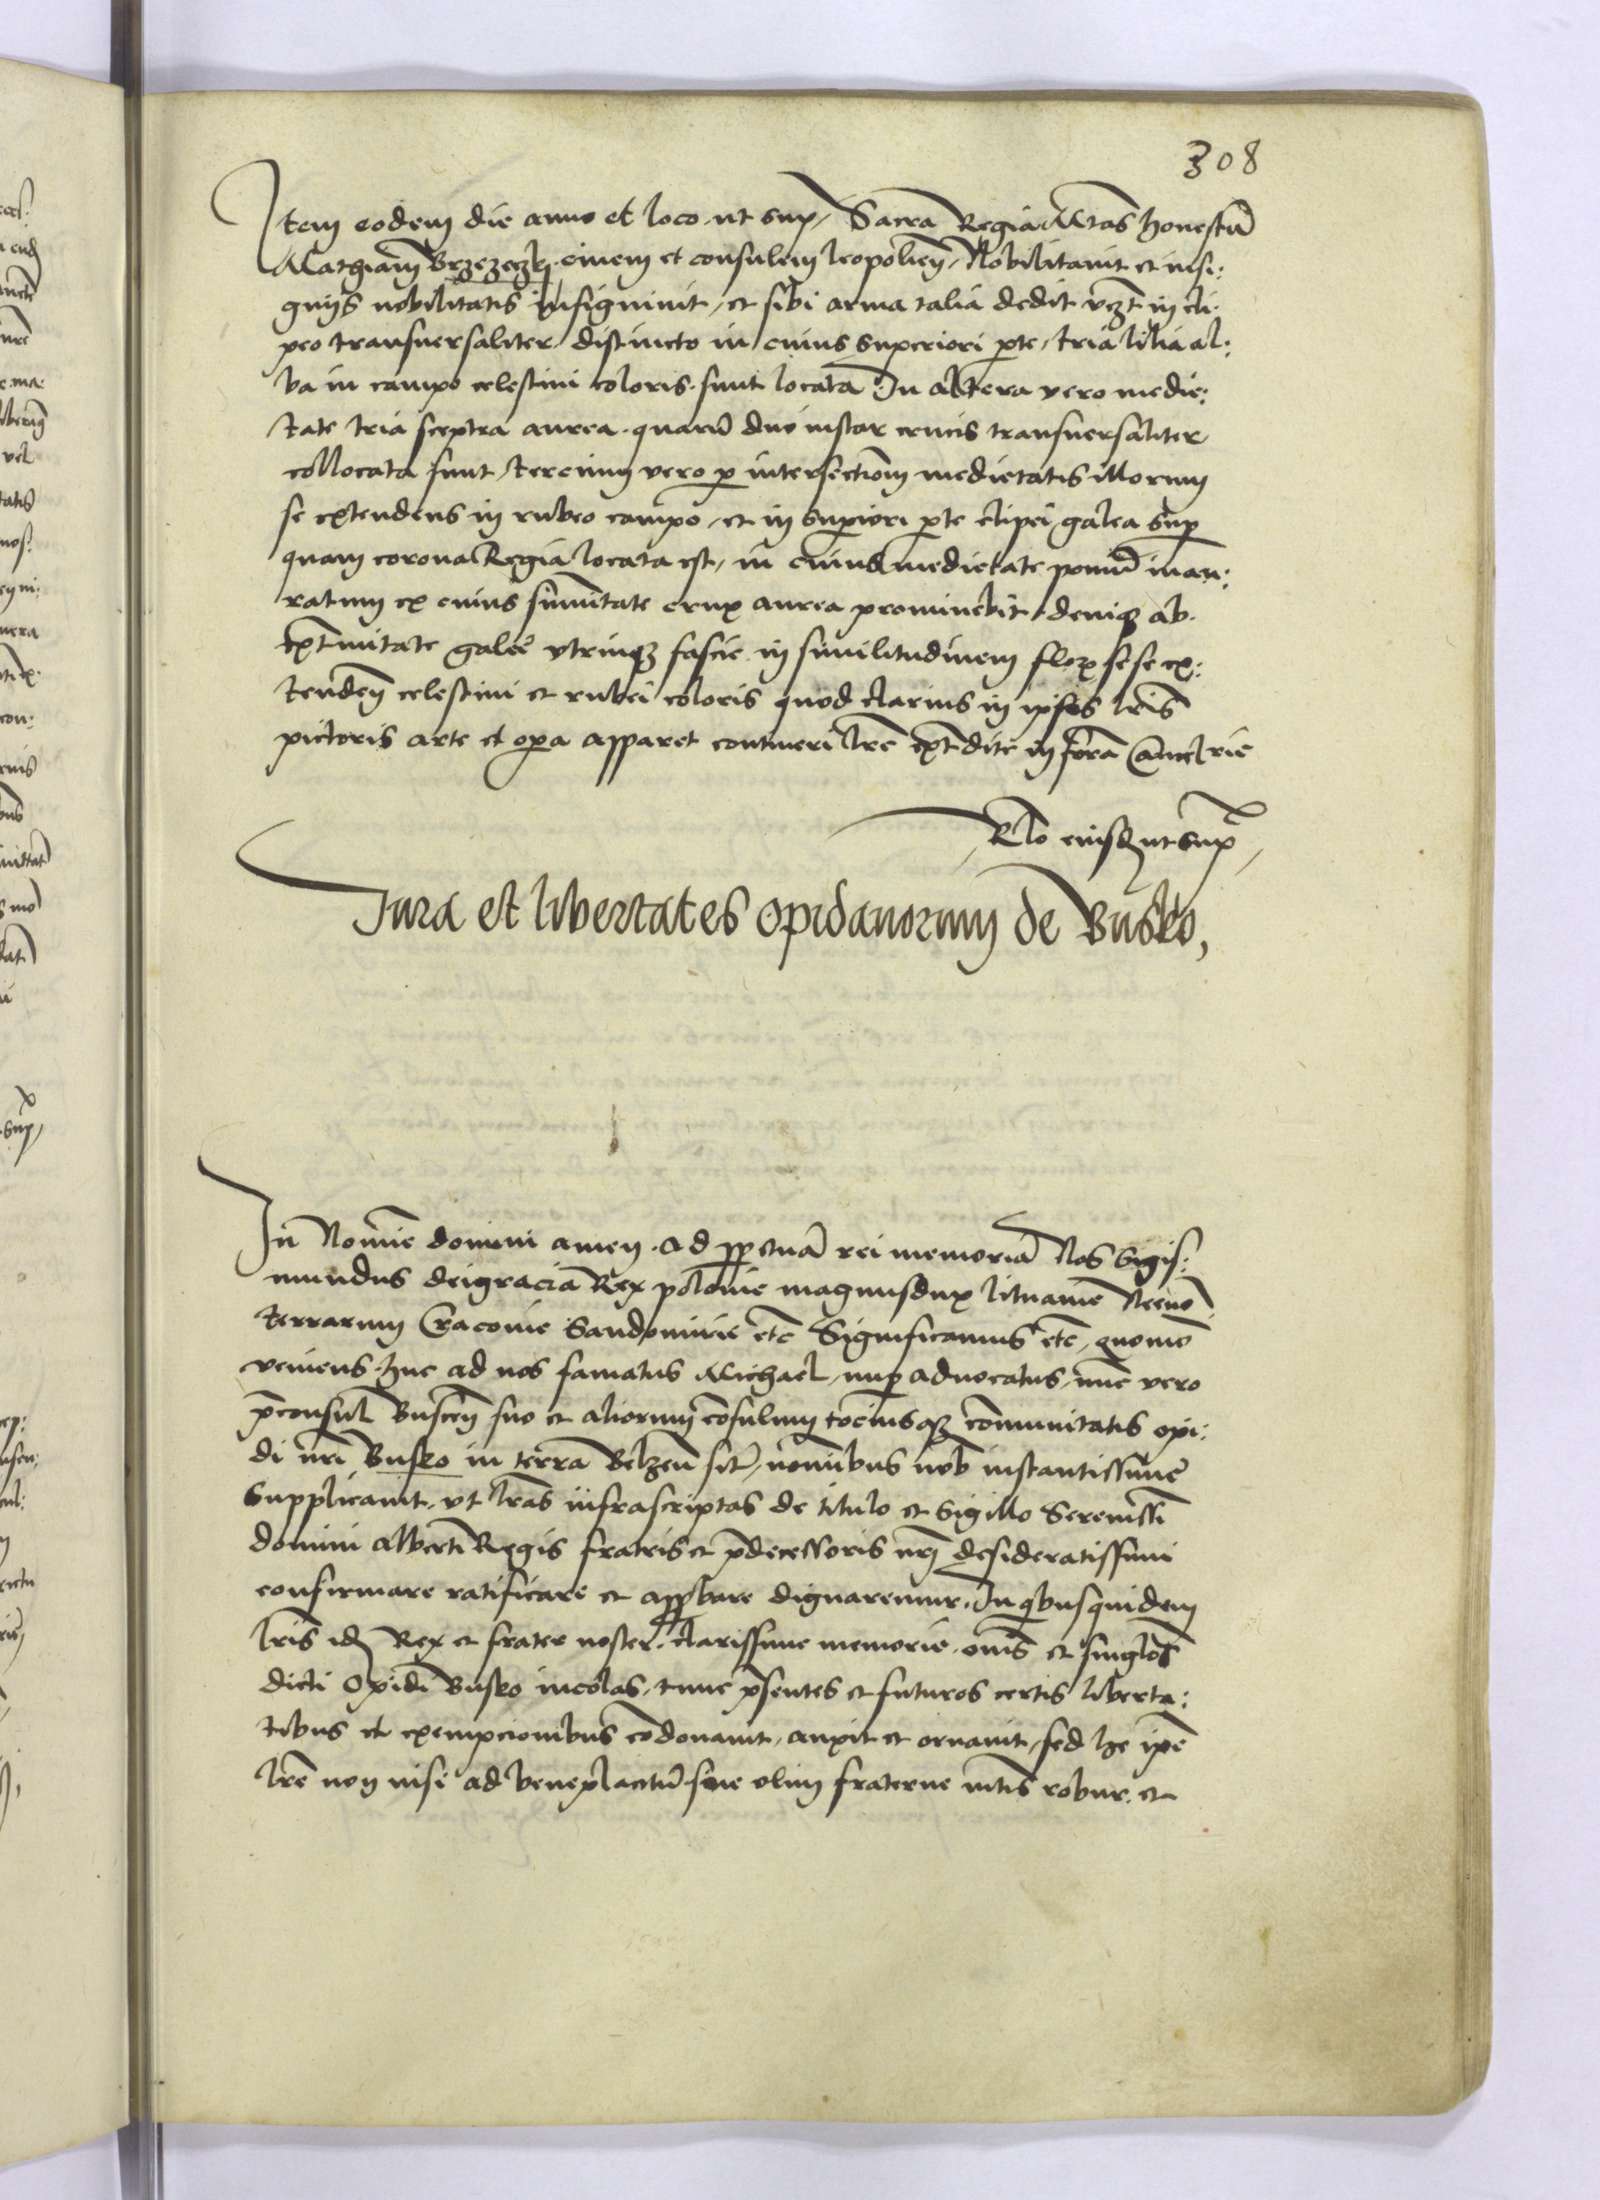 308
Item eodem die anno et loco ut sup, Sacra Regia Mtas honestũ
Mathiam Brzezeczky civem et consulem leopolien, Nobilitavit et insi:
gnijs nobilitatis insignivit, et sibi arma talia dedit vzt in cli
peo transversaliter distincto in cuius superiori pte, tria lilia al:
ba in campo celestini coloris sunt locata In altera vero medie:
tate tria sceptra aurea quarũ duo instar crucis transversaliter
collocata sunt, tercium vero p intersectiom medietatis illorum
se extendens in rubeo campo, et in superiori pte clipei galea sup
quam corona Regia locata est, in cuius medietate pomũ inau:
ratum ex cuius sumitate crux aurea prominebit denicz ab
extmitate galee utrincz fascie in similitudinem flor sese ex:
tenden celestini et rubei coloris quod clarius in ipsis lris
pictoris arte et opa apparet contineri lre expedite in forã Cancelrie
Rlo eiusd ut sup
Jura et libertates opidanorum de Busko,
In Nomie domini amen. ad ppetuã rei memoriã Nos Sigis:
mundus dei gracia Rex polonie magnus dux lituanie Necno
terrarum Cracovie Sandomirie etc Significamus etc, quomo
veniens huc ad nos famatus Michael nup advocatus, nũc vero
pconsul Buscen suo et aliorum cosulum tociuscz communitatis opi:
di nri Busko in terra Belzen sit, nomibus nob instantissime
supplicavit, ut lras infrascriptas de titulo et sigillo Serenissi
domini alberti Regis fratris et pdecessoris nri desideratissimi
confirmare ratificare et appbare dignaremur. In qbusquidem
lris id Rex et frater noster clarissime memorie omes et singlos
dicti Opidi Busko incolas, tunc psentes et futuros certis liberta:
tibus et exempcionibus codonavit, auxit et ornavit, sed he ipe
lre non nisi ad beneplacitũ sue olim fraterne mtis robur et